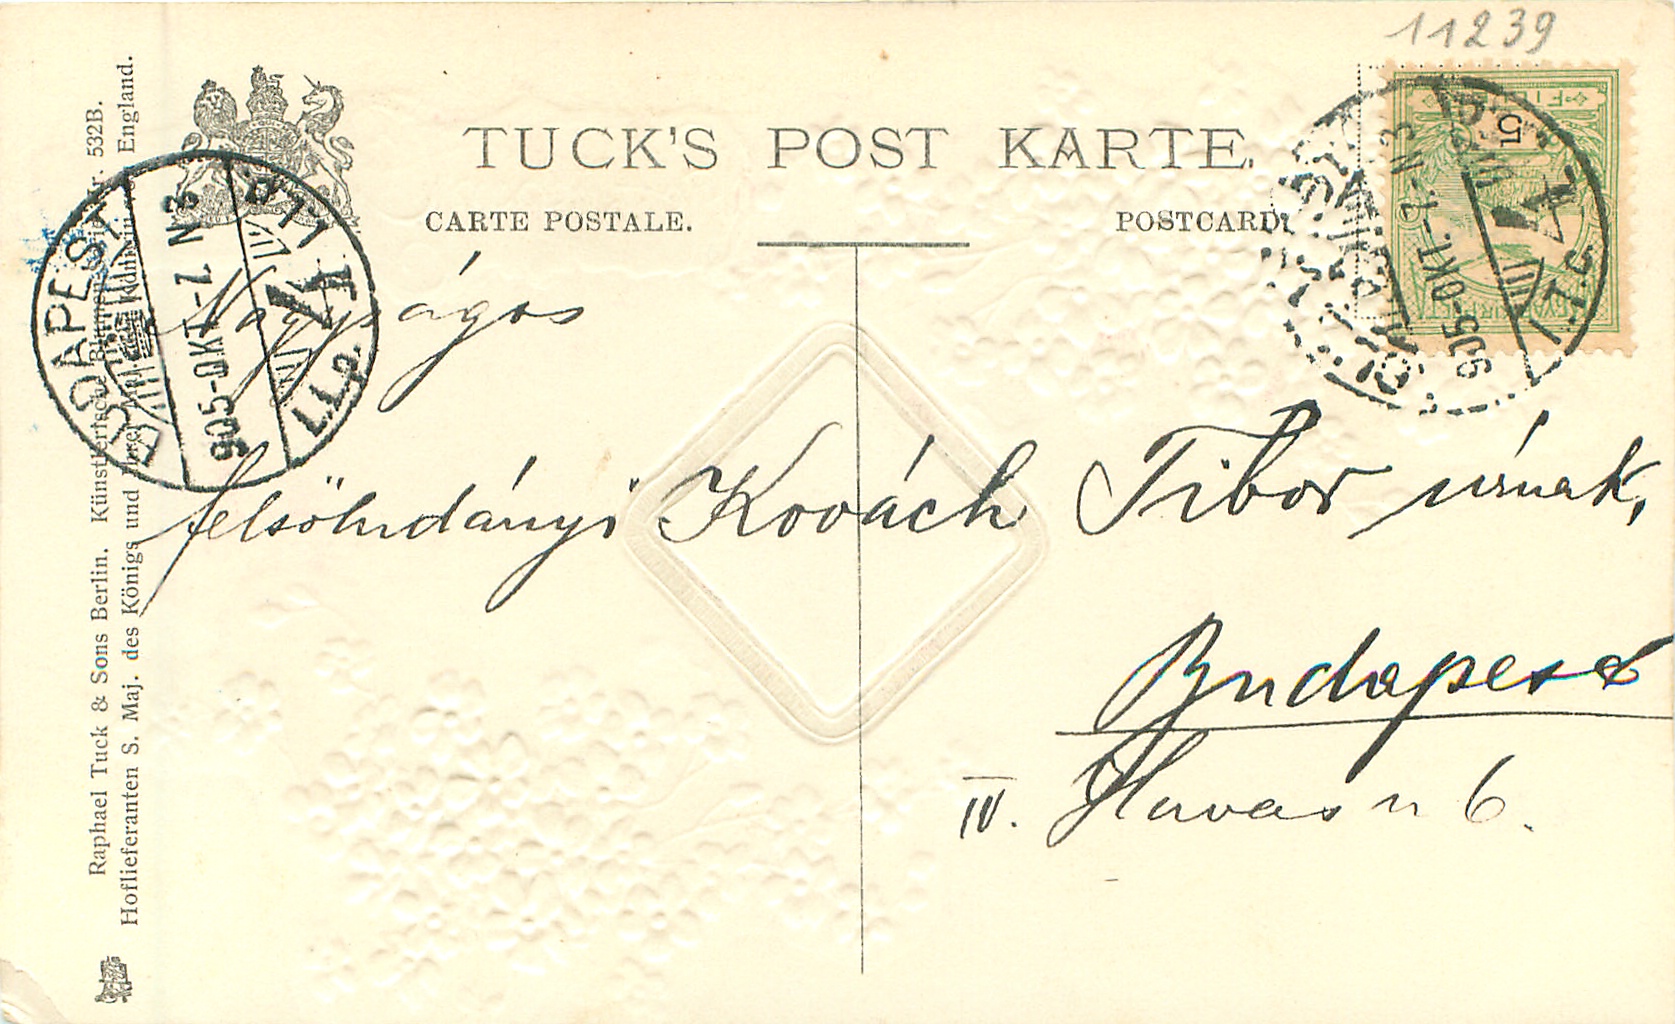 11239
TUCK'S POST KARTE.
CARTE POSTALE. POSTCARD
5
BUDAPEST
905 OKT -7 N 3
905 OKT -7 N 3
Nagyságos
felsöludányi Kovách Tibor úrnak,
Budapest
IV. Havas u 6.
Raphael Tuck & Sons Berlin. Künstlerische 532B.
Hoflieferanten S. Maj. des Königs und England.